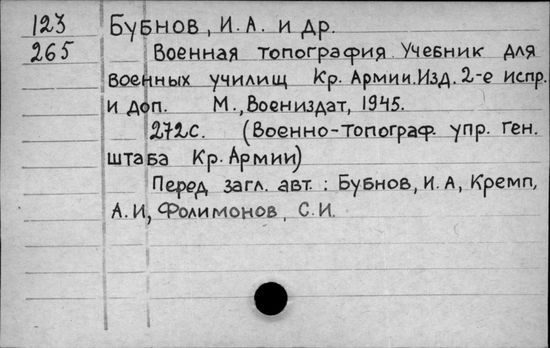 123 Бубнов, И.А. и др.
265 Военная топография. Учебник для
военных училищ Кр. Армии. Изд. 2-е испр.
и доп. М., Воениздат, 1945.
272с. (Военно-топограф. упр. Ген.
штаба Кр. Армии)
Перед загл. авт.: Бубнов, И.А, Кремп,
А.И, Фолимонов, С.И.